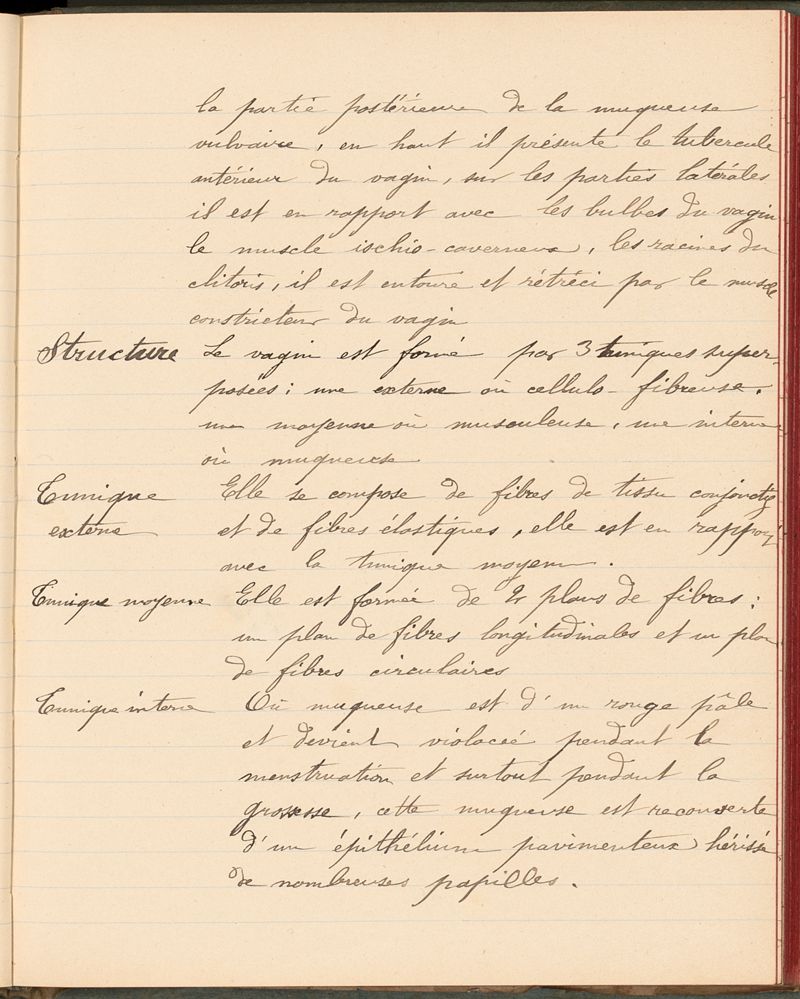 la partie postérieure de la muqueuse
vulvaire, en haut il présente le tubercule
antérieur du vagin, sur les parties latérales
il est en rapport avec les bulbes du vagin
le muscle ischio-caverneux, les racines du
clitoris, il est entouré et rétréci par le muscle
constricteur du vagin
Structure Le vagin est formé par 3 tuniques super-
posées : une externe où cellulo-fibreuse.
une moyenne où musculeuse, une interne
où muqueuse
Tunique Elle se compose de fibres de tissu conjonctif
externe et de fibres élastiques, elle est en rapport
avec la tunique moyenne.
Tunique moyenne Elle est formée de 2 plans de fibres :
un plan de fibres longitudinales et un plan
de fibres circulaires
Tunique interne Où muqueuse est d'un rouge pâle
et devient violacée pendant la
menstruation et surtout pendant la
grossesse, cette muqueuse est recouverte
d'un épithélium pavimenteux hérissé
de nombreuses papilles.